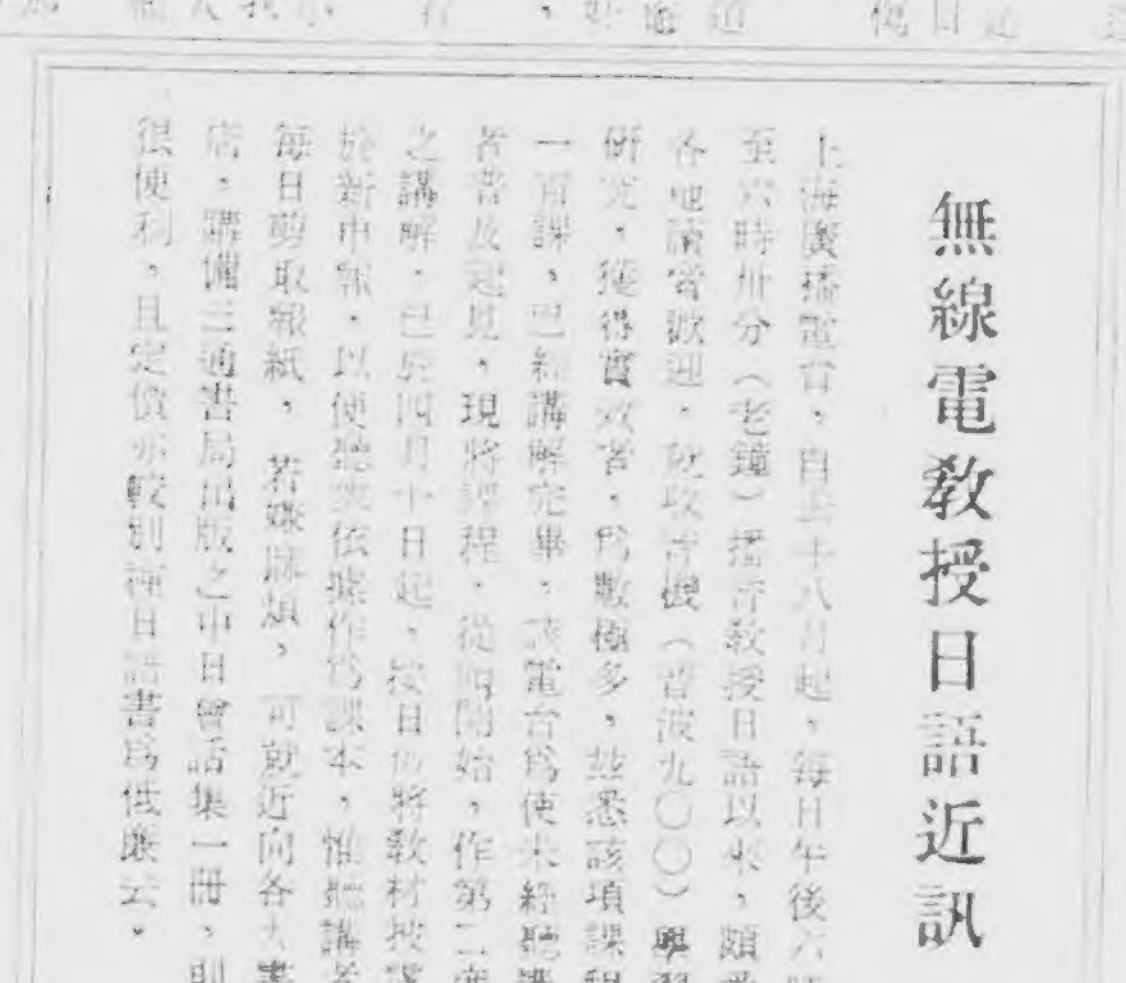 無線電教授日語近訊
上海廣播電台，自去年八月起，每日午後六時
至六時卅分（老鐘）播音教授日語以來，頗受
各地讀者歡迎，就收音機（音波九〇〇）學習
研究，獲得實效者，爲數極多，茲悉該項課程
一百課，已經講解完畢，該電台爲使未經聽講
者普及起見，現將課程，從頭開始，作第二度
之講解，已於四月十日起，按日仍將教材披露
於新申報，以便聽衆依據作爲課本，惟聽講者
每日剪取報紙，若嫌麻煩，可就近向各大書
店，購備三通書局出版之中日會話集一冊，則
很便利，且定價亦較別種日語書爲低廉云。